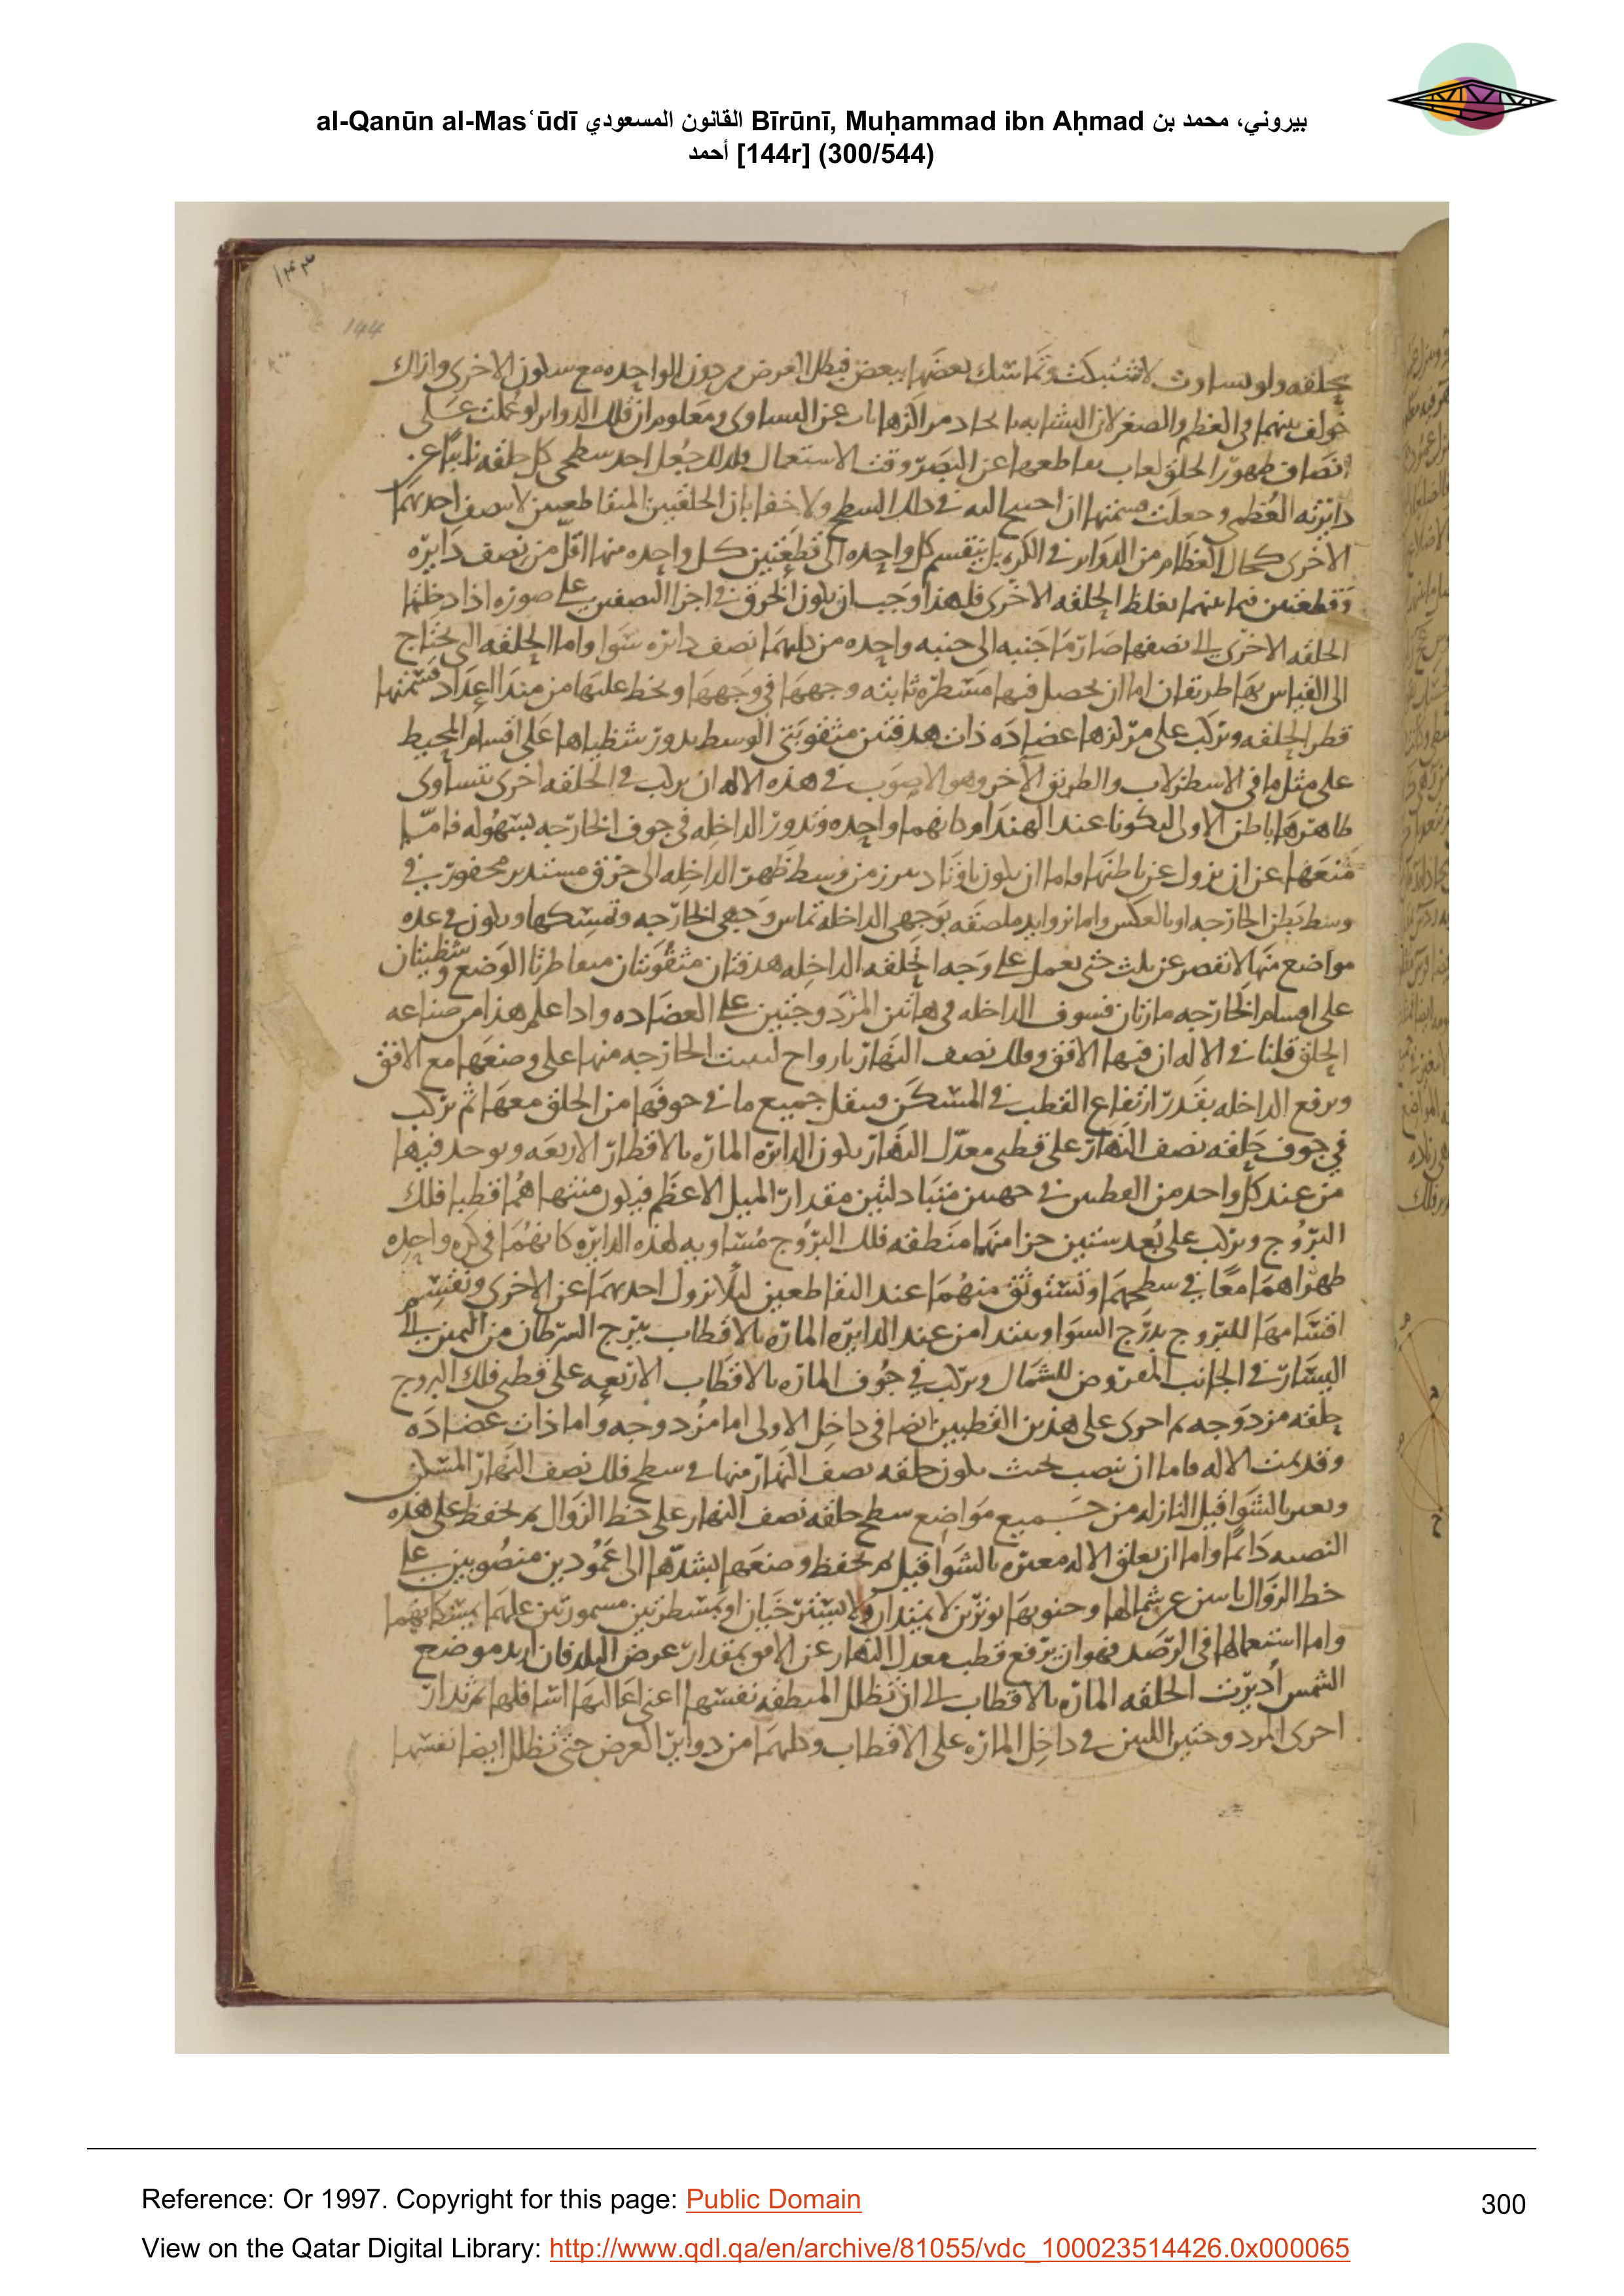 al-Qanūn al-Masʿūdī القانون المسعودي Bīrūnī, Muḥammad ibn Aḥmad بيروني، محمد بن
أحمد [144r] (300/544)
١٤٤
144
بحلقه ولو تساوت لاشتبكت وتماسك بعضها ببعض فبطل الغرض من الواحده مع سكون الاخرى واذاك
خولف بينهما فى العظم والصغر لان التشابه عن التساوى ومعلوم ان تلك الدواير لو عملت على
انصاف ظهور الحلق لغاب تقاطعها عن البصر وقت الاستعمال فلذلك جعل احد سطحى كل حلقه نايبا عن
دايرته العظمى وجعلت قسمتها ان احتيج اليه فى ذلك السطح ولا خفا بان الحلقتين المتقاطعتين لا تنصف احديهما
الاخرى كحال العظام من الدواير فى الكره بل ينقسم كل واحده الى قطعتين كل واحده منها اقل من نصف دايره
وقطعتين فيما بينهما بغلظ الحلقه الاخرى فلهذا وجب ان يكون الخرق فى اجزا النصفين على صوره اذا دخلتها
الحلقه الاخرى الى نصفها صار ما جنبه الى جنبه واحده من كليهما نصف دايره سوا واما الحلقه التى يحتاج
الى القياس بها طريقان اما ان يحصل فيها مسطره ثابته وجهها فى وجهها ويخط عليها من مبدا العداد قسمتها
قطر الحلقه وتركب على مركزها عضاده ذات هدفتين مثقوبتى الوسط يدور شظياها على اقسام المحيط
على مثل ما فى الاسطرلاب والطريق الاخر وهو الاصوب فى هذه الاله ان يركب فى الحلقه اخرى تساوى
ظاهرها باطن الاولى ليكونا عند الهندام كانهما واحده وتدور الداخله فى جوف الخارجه بسهوله فاما
منعها عن ان يزول عن باطنها واما ان يكون باوتاد تبرز من وسط ظهر الداخله الى خرق مستدير محفور فى
وسط بطن الخارجه او بالعكس واما بزوايد ملصقه بوجهى الداخله تماس وجهى الخارجه وتمسكها ويكون فى عده
مواضع منها لا تقصر عن ثلث حتى يعمل على وجه الحلقه الداخله هدفتان مثقوبتان متناظرتا الوضع وشظيتان
على اقسام الخارجه مارتان فسوف الداخله فى هاتين المزدوجتين على العضاده واذا علم هذا من صناعه
الحلق قلنا فى الاله ان فيها الافق وفلك نصف النهار بازواج لتثبت الخارجه منها على وضعها مع الافق
ويرفع الداخله بقدر ارتفاع القطب فى المسكن وينقل جميع ما فى جوفها من الحلق معها ثم يركب
فى جوف حلقه نصف النهار على قطبى معدل النهار يكون الدايره الماره بالاقطار الاربعه ويوخذ فيها
من عند كل واحد من القطبين فى جهتين متبادلتين مقدار الميل الاعظم فيكون منتهاهما قطبا فلك
البروج ويركب على بعد ستين جزا منهما منطقه فلك البروج مساويه لهذه الدايره كانهما فى كره واحده
ظهراهما معا فى سطحهما وتستوثق منهما عند التقاطعين ليلا تزول احديهما عن الاخرى وتقسم
اقسامها للبروج بدرج السوا ويبتدا من عند الدايره الماره بالاقطاب ببرج السرطان من اليمين الى
اليسار فى الجانب المفروض للشمال ويركب فى جوف الماره بالاقطاب الاربعه على قطبى فلك البروج
حلقه مزدوجه ثم اخرى على هذين القطبين ايضا فى داخل الاولى اما مزدوجه واما ذات عضاده
وقد تمت الاله فاما ان تنصب بحيث يكون حلقه نصف النهار منها فى سطح فلك نصف النهار المسكن
وتعير بالشواقيل النازله من جميع مواضع سطح حلقه نصف النهار على خط الزوال ثم تحفظ على هذه
النصبه دايما واما ان يعلق الاله معيره بالشواقيل ثم يحفظ وضعها بشدها الى عمودين منصوبين على
خط الزوال عن شمالها وجنوبها بوترين لا يمتدان ولا يسترخيان او بمسطرتين مسمورتين عليهما يمسكانهما
واما استعمالها فى الرصد فهو ان يرفع قطب معدل النهار عن الافق بمقدار عرض البلد فان اريد موضع
الشمس اديرت الحلقه الماره بالاقطاب الى ان تظلل المنطقه نفسها اعنى اعاليها اسافلها ثم تدار
احرى المزدوجتين اللتين فى داخل الماره على الاقطاب وكلهما من دواير العرض حتى تظلل ايضا نفسها
Reference: Or 1997. Copyright for this page: Public Domain
300
View on the Qatar Digital Library: http://www.qdl.qa/en/archive/81055/vdc_100023514426.0x000065